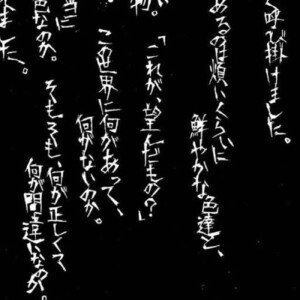 く呼び掛けました。
あるのは煩いくらいに
鮮やかな色達と、
「これが、望んだもの？」
物。
この世界に何があって、
何がないのか。
当に
色なのか。
そもそも、何が正しくて
何が間違いなのか。
ました。